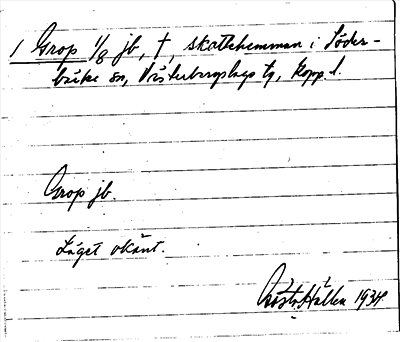 1 Grop 1/8 jb, †, skattehemman i Söder-
bärke sn, Västerbergslags tg, Kopp. l.
Grop jb.
Läget okänt.
Gösta Hallén 1934.